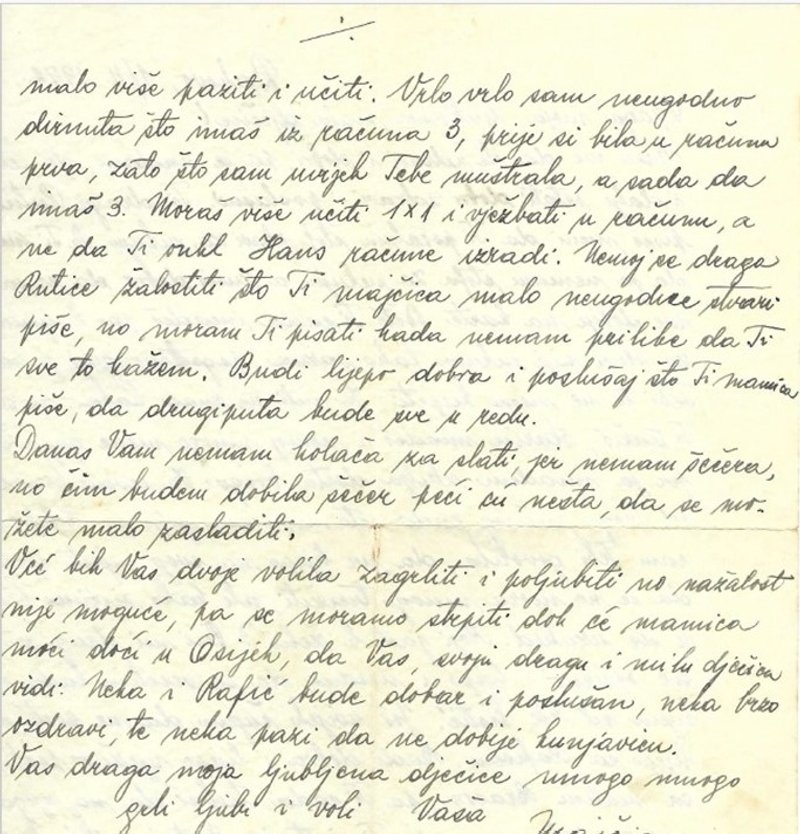 malo više paziti i učiti. Vrlo vrlo sam neugodno
dirnuta što imaš iz računa 3, prije si bila u računu
prva, zato što sam uvijek Tebe muštrala, a sada da
imaš 3. Moraš više učiti 1×1 i vježbati u računu, a
ne da Ti onkl Hans račune izradi. Nemoj se draga
Rutice žalostiti što Ti majčica malo neugodne stvari
piše, no moram Ti pisati kada nemam prilike da Ti
sve to kažem. Budi lijepo dobra i poslušaj što Ti mamica
piše, da drugiputa bude sve u redu.
Danas Vam nemam kolača za slati, jer nemam šećera,
no čim budem dobila šećer peći ću nešta, da se mo-
žete malo zasladiti.
Već bih Vas dvoje volila zagrliti i poljubiti no nažalost
nije moguće, pa se moramo strpiti dok će mamica
moći doći u Osijek, da Vas, svoju dragu i milu dječicu
vidi. Neka i Rafić bude dobar i poslušan, neka brzo
ozdravi, te neka pazi da ne dobije hunjavicu.
Vas draga moja ljubljena dječice, mnogo mnogo
grli ljubi i voli Vaša